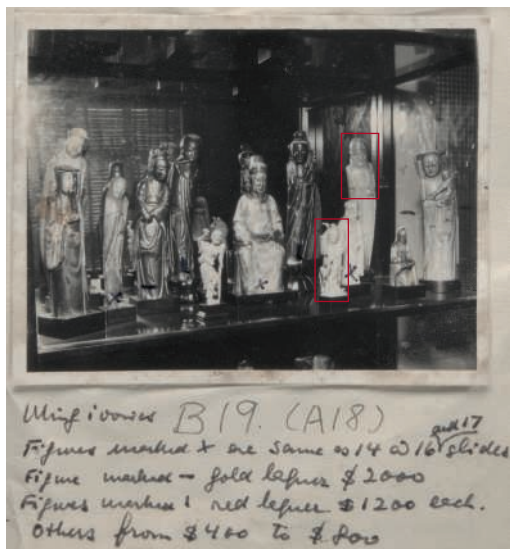 Ming ivories B19. (A18)
and 17
Figures marked x are same as 14 & 16 slides
Figure marked – gold lacquer $2000
Figures marked : red lacquer $1200 each.
Others from $400 to $800